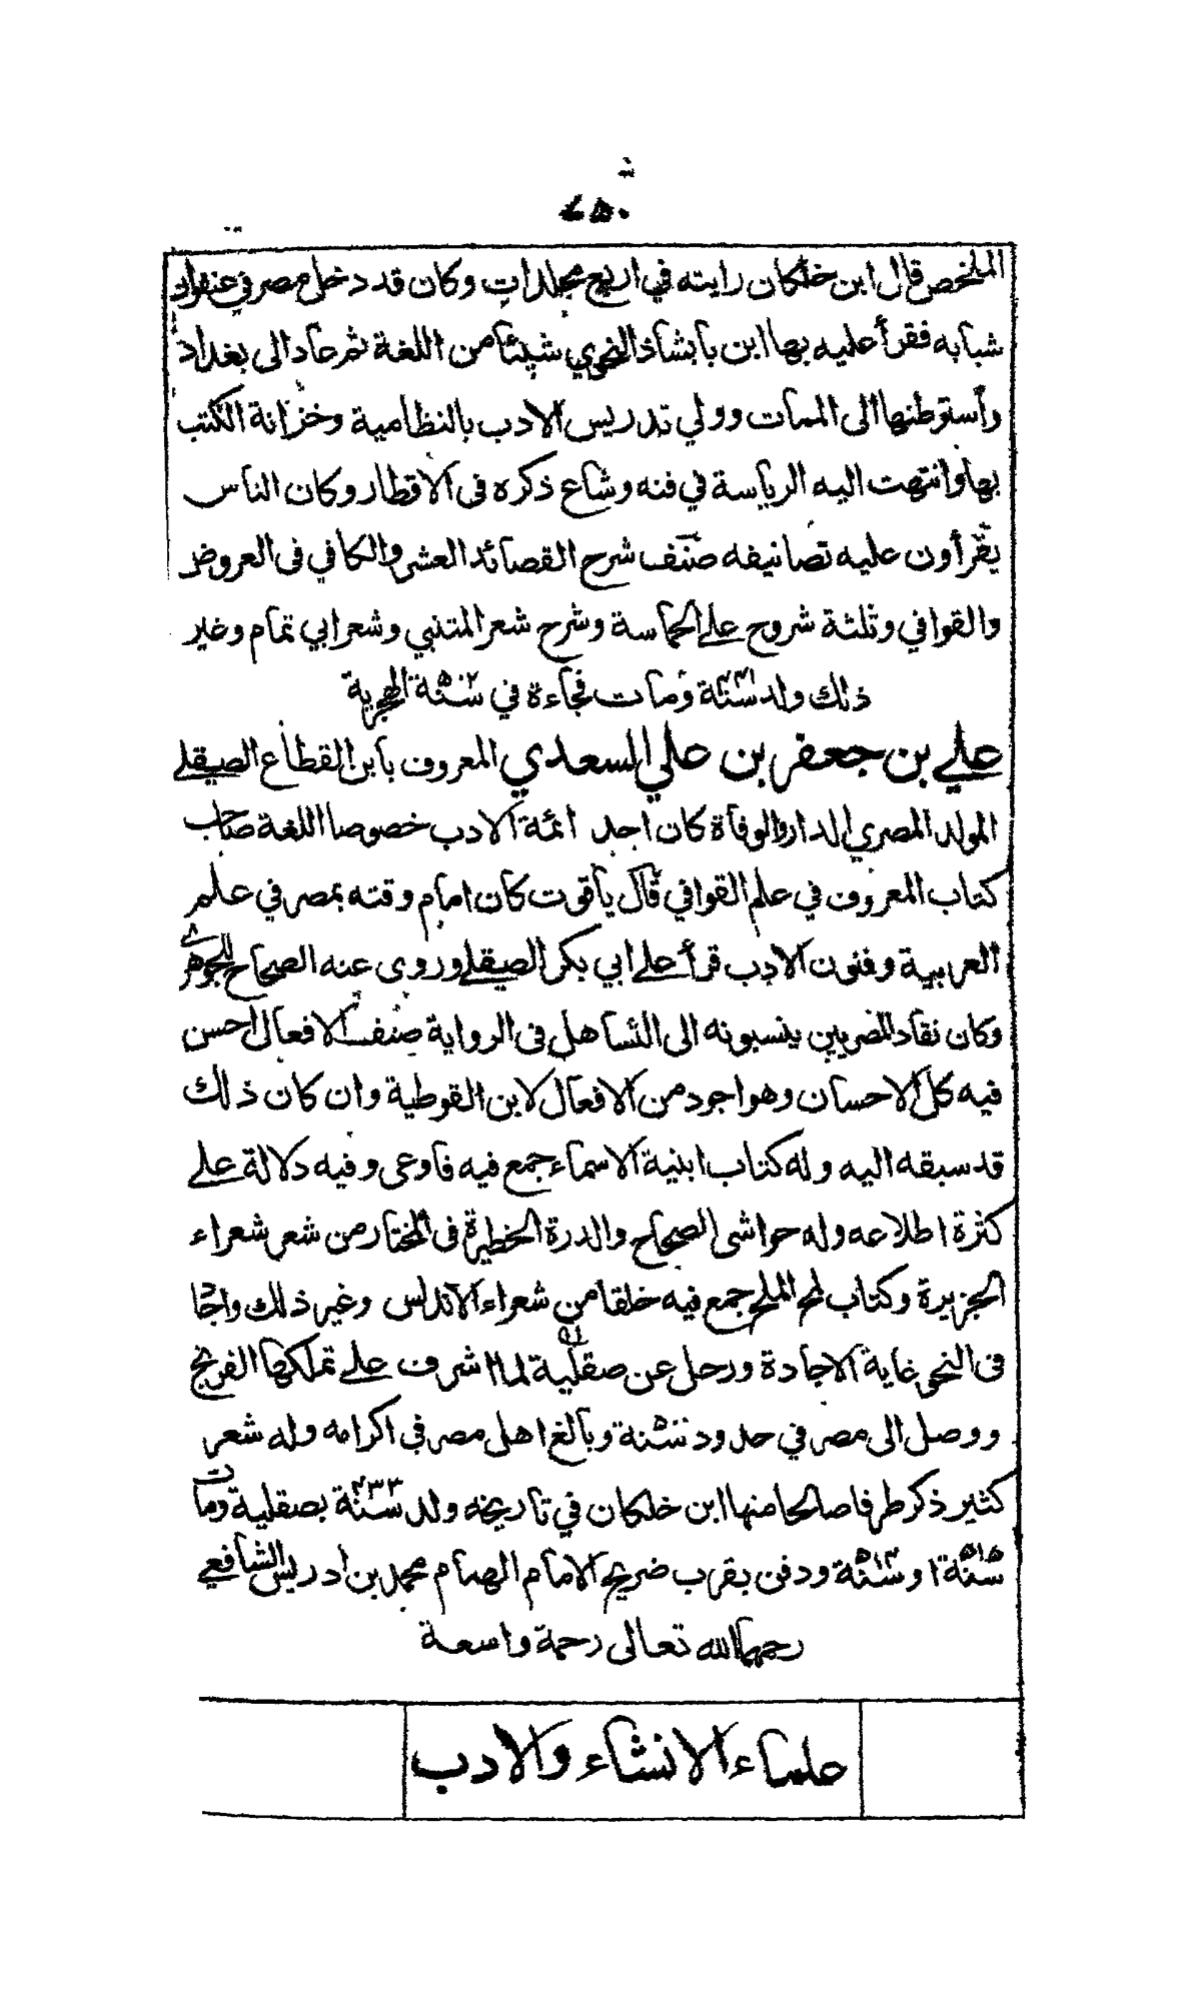 ٧٥٠
الملخص قال ابن خلكان رايته في اربع مجلدات وكان قد دخل مصر في عنفوان
شبابه فقرأ عليه بها ابن بابشاذ النحوي شيئا من اللغة ثم عاد الى بغداد
واستوطنها الى الممات وولي تدريس الادب بالنظامية وخزانة الكتب
بها وانتهت اليه الرياسة في فنه وشاع ذكره فى الاقطار وكان الناس
يقرأون عليه تصانيفه صنف شرح القصائد العشر والكافي فى العروض
والقوافي وثلثة شروح على الحماسة وشرح شعر المتنبي وشعر ابي تمام وغير
ذلك ولد سنة ٤٢١ ومات فجاءة في سنة ٥٠٢ الهجرية
علي بن جعفر بن علي السعدي المعروف بابن القطاع الصيقلي
المولد المصري الدار والوفاة كان احد ائمة الادب خصوصا اللغة صاحب
كتاب المعروف في علم القوافي قال ياقوت كان امام وقته بمصر في علم
العربية وفنون الادب قرأ على ابي بكر الصيقلي وروى عنه الصحاح للجوهري
وكان نقاد المصريين ينسبونه الى التساهل فى الرواية صنف الافعال احسن
فيه كل الاحسان وهو اجود من الافعال لابن القوطية وان كان ذلك
قد سبقه اليه وله كتاب ابنية الاسماء جمع فيه فاوعى وفيه دلالة على
كثرة اطلاعه وله حواشى الصحاح والدرة الخطيرة فى المختار من شعر شعراء
الجزيرة وكتاب لمح الملح جمع فيه خلقا من شعراء الاندلس وغير ذلك واجاد
فى النحو غاية الاجادة ورحل عن صقلية لما اشرف على تملكها الفرنج
ووصل الى مصر في حدود سنة ٥٠٠ وبالغ اهل مصر في اكرامه وله شعر
كثير ذكر طرفا صالحا منها ابن خلكان في تاريخه ولد سنة ٤٣٣ بصقلية ومات
سنة ٥١٥ او سنة ٥١٤ ودفن بقرب ضريح الامام الهمام محمد بن ادريس الشافعي
رحمهما الله تعالى رحمة واسعة
علماء الانشاء والادب